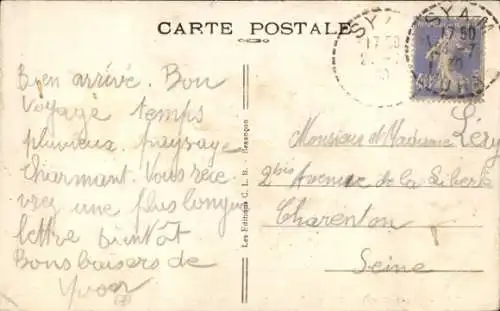 CARTE POSTALE
SYAM
17 50
SYAM
17 50
JURA
Bien arrivé. Bon
voyage temps
pluvieux. paysage
charmant. Vous rece
vrez une plus longue
lettre bientôt
Bons baisers de
Yvon
Les Editions C. L. B. - Besançon
Monsieur et Madame Léry
2bis Avenue de la Liberté
Charenton
Seine